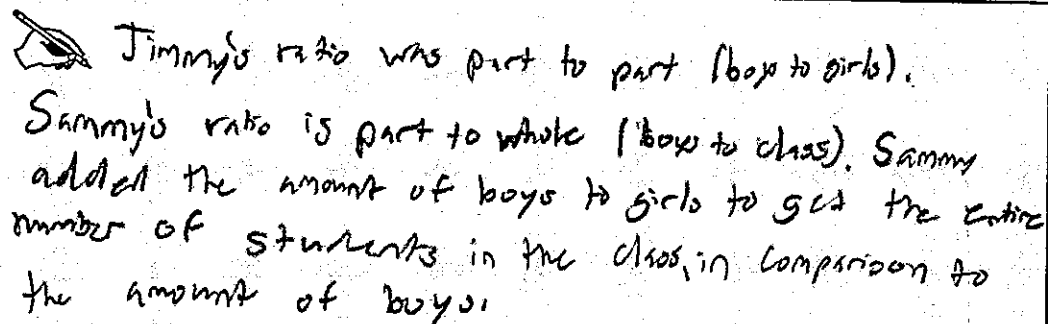 Jimmy's ratio was part to part (boys to girls).
Sammy's ratio is part to whole (boys to class). Sammy
added the amount of boys to girls to get the entire
number of students in the class, in comparison to
the amount of boys.